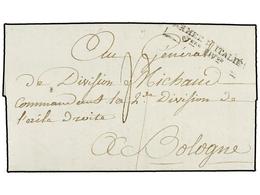 ARMÉE D'ITALIE
Au Général
de Division Michaud
Commandant la 2.e Division de
l'aile droite
A Bologne